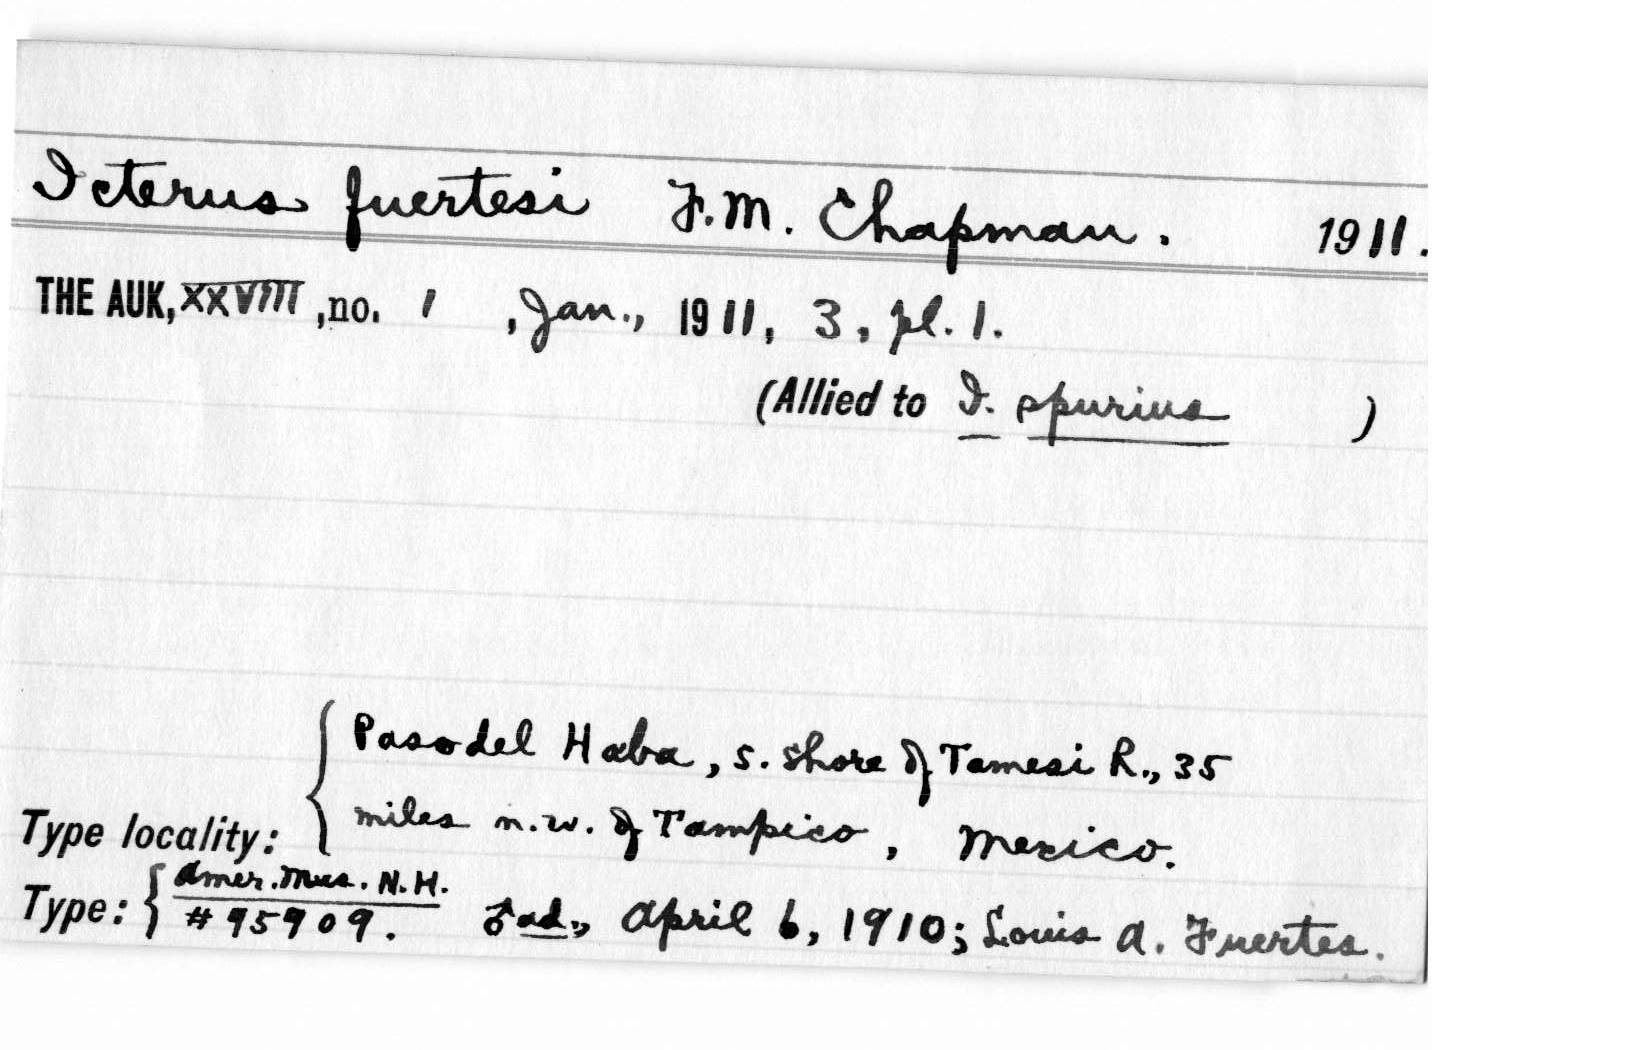 Icterus fuertesi F. M. Chapman. 1911.
THE AUK, XXVIII, no. 1, Jan., 1911, 3, pl. 1.
(Allied to I. spurius )
Paso del Haba, s. shore of Tamesi R., 35
miles n.w. of Tampico, Mexico.
Type locality:
Amer. Mus. N. H.
Type: # 95909. ♂ ad., April 6, 1910; Louis A. Fuertes.